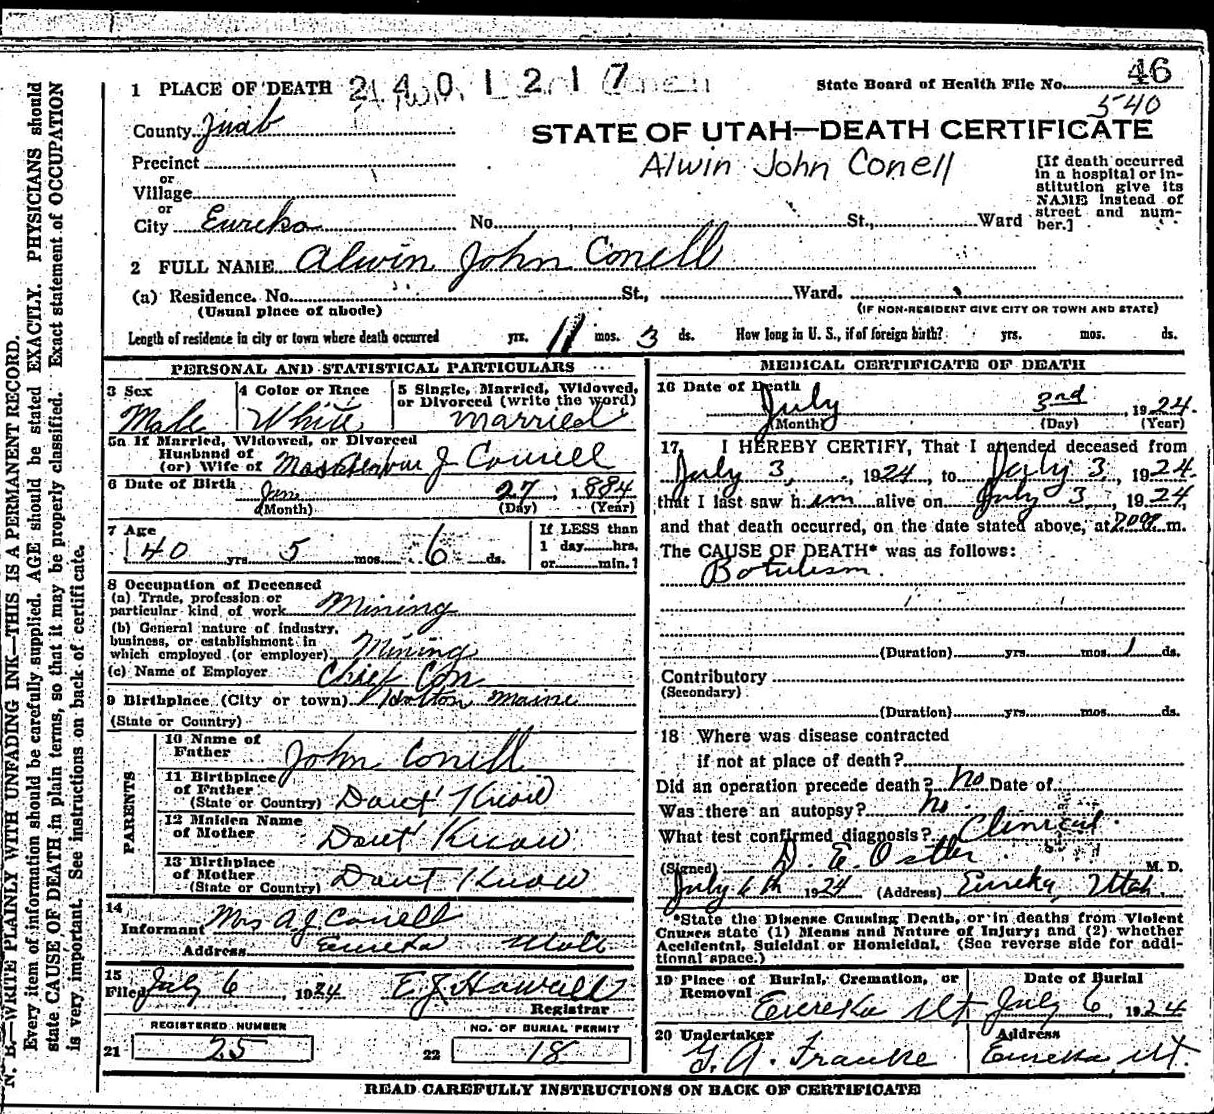 46
1 PLACE OF DEATH 2401217 State Board of Health File No.
540
County Juab STATE OF UTAH—DEATH CERTIFICATE
Precinct
or
Village
or
City Eureka No. St., Ward
Alwin John Conell
[If death occurred
in a hospital or in-
stitution give its
NAME instead of
street and num-
ber.]
2 FULL NAME Alwin John Conell
(a) Residence. No. St., Ward.
(Usual place of abode) (IF NON-RESIDENT GIVE CITY OR TOWN AND STATE)
Length of residence in city or town where death occurred yrs. 11 mos. 3 ds. How long in U. S., if of foreign birth? yrs. mos. ds.
PERSONAL AND STATISTICAL PARTICULARS
3 Sex
Male
4 Color or Race
White
5 Single, Married, Widowed,
or Divorced (write the word)
Married
5a If Married, Widowed, or Divorced
Husband of
(or) Wife of J Conell
6 Date of Birth
Jan 27, 1884
(Month) (Day) (Year)
7 Age
40 yrs. 5 mos. 6 ds.
If LESS than
1 day hrs.
or min.?
8 Occupation of Deceased
(a) Trade, profession or
particular kind of work Mining
(b) General nature of industry,
business, or establishment in
which employed (or employer) Mining
(c) Name of Employer Chief Con
9 Birthplace (City or town) Holton Maine
(State or Country)
PARENTS
10 Name of
Father John Conell
11 Birthplace
of Father
(State or Country) Dont Know
12 Maiden Name
of Mother Dont Know
13 Birthplace
of Mother
(State or Country) Dont Know
14
Informant Mrs A J Conell
Address Eureka Utah
15
Filed July 6, 1924 E J Howell
Registrar
REGISTERED NUMBER NO. OF BURIAL PERMIT
21 25 22 18
MEDICAL CERTIFICATE OF DEATH
16 Date of Death
July 3rd, 1924.
(Month) (Day) (Year)
17. I HEREBY CERTIFY, That I attended deceased from
July 3, 1924, to July 3, 1924.
that I last saw him alive on July 3, 1924,
and that death occurred, on the date stated above, at m.
The CAUSE OF DEATH* was as follows:
Botulism.
(Duration) yrs. mos. 1 ds.
Contributory
(Secondary)
(Duration) yrs. mos. ds.
18 Where was disease contracted
if not at place of death?
Did an operation precede death? no Date of
Was there an autopsy? no.
What test confirmed diagnosis? Clinical.
(Signed) D. E. Ostler M. D.
July 6th 1924 (Address) Eureka, Utah.
*State the Disease Causing Death, or in deaths from Violent
Causes state (1) Means and Nature of Injury; and (2) whether
Accidental, Suicidal or Homicidal. (See reverse side for addi-
tional space.)
19 Place of Burial, Cremation, or
Removal Eureka Ut
Date of Burial
July 6, 1924
20 Undertaker
G. A. Franke
Address
Eureka, Ut.
READ CAREFULLY INSTRUCTIONS ON BACK OF CERTIFICATE
N. B.—WRITE PLAINLY WITH UNFADING INK—THIS IS A PERMANENT RECORD.
Every item of information should be carefully supplied. AGE should be stated EXACTLY. PHYSICIANS should
state CAUSE OF DEATH in plain terms, so that it may be properly classified. Exact statement of OCCUPATION
is very important. See instructions on back of certificate.